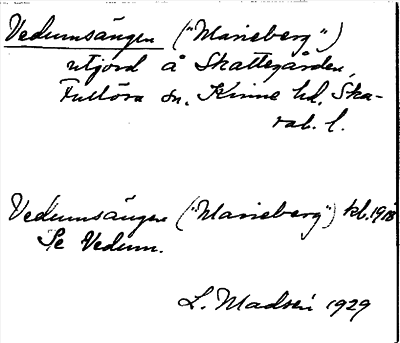 Vedumsängen ("Marieberg")
utjord å Skattegården,
Fullösa sn, Kinne hd, Ska-
rab. l.
Vedumsängen ("Marieberg") kb. 1918
Se Vedum.
L. Madsén 1929